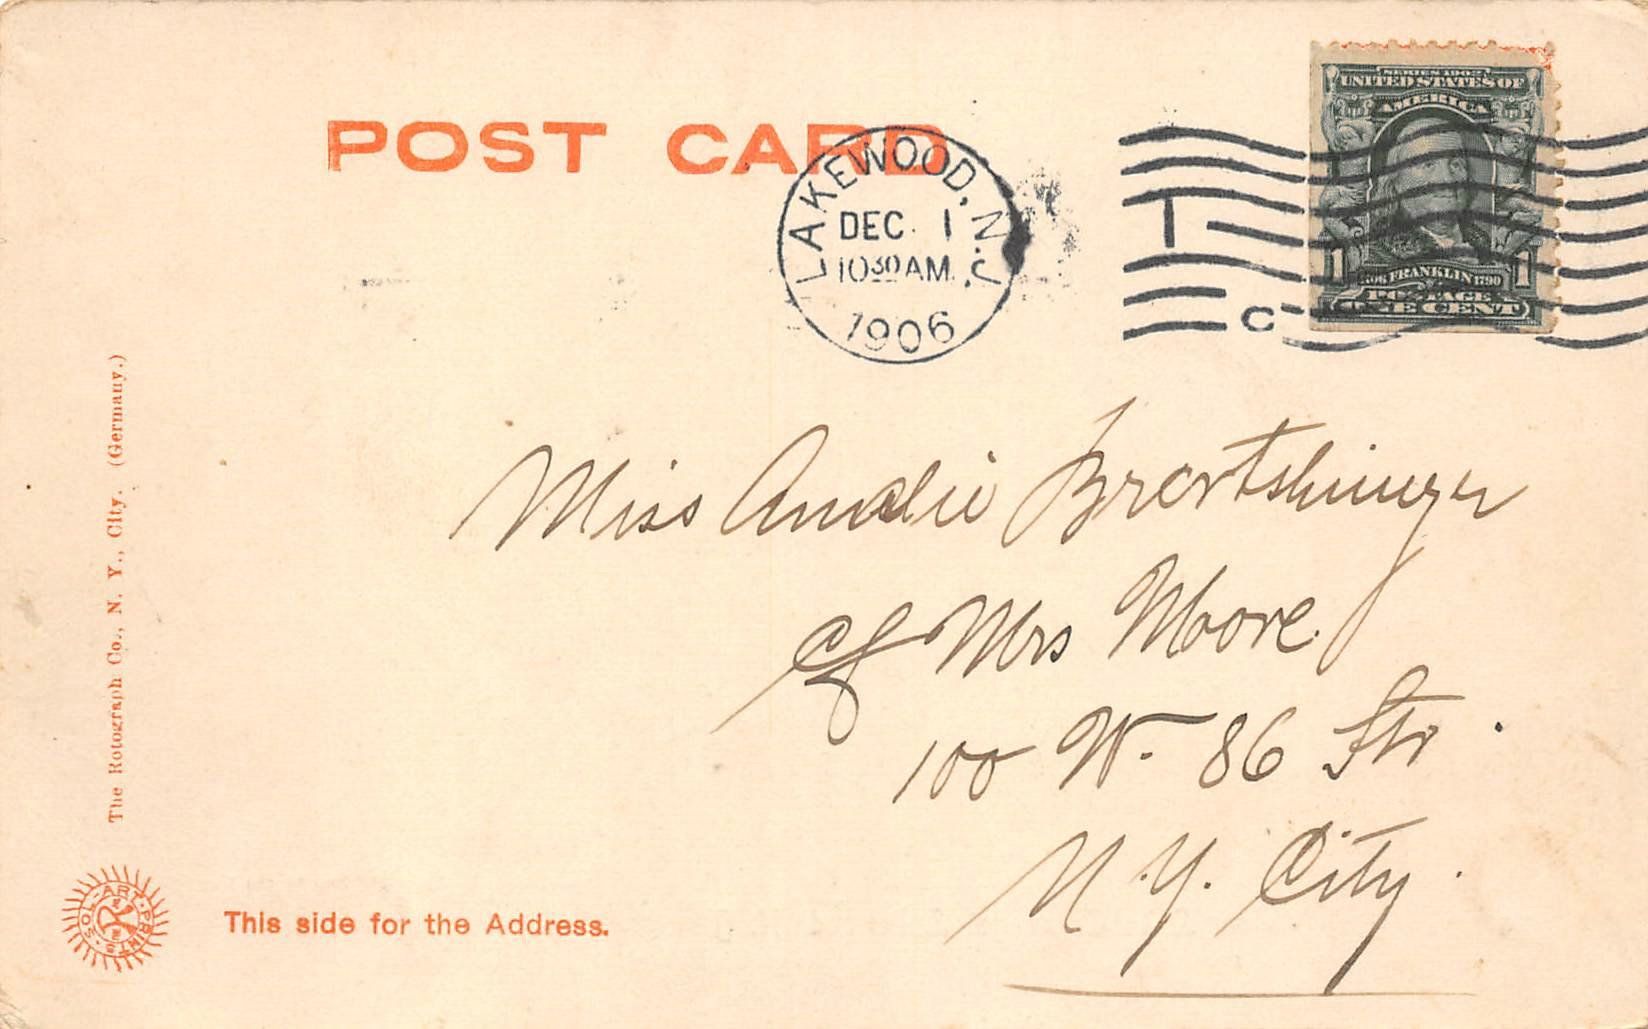 POST CARD
LAKEWOOD, N.J.
DEC. 1
10 30 AM.
1906
SERIES 1902
UNITED STATES OF
AMERICA
1 1
1706 FRANKLIN 1790
POSTAGE
ONE CENT
C
Miss Amelie
c/o Mrs Moore.
100 W. 86 Str.
N.Y. City.
The Rotograph Co., N. Y., City. (Germany.)
SOL-ART-PRINTS
This side for the Address.